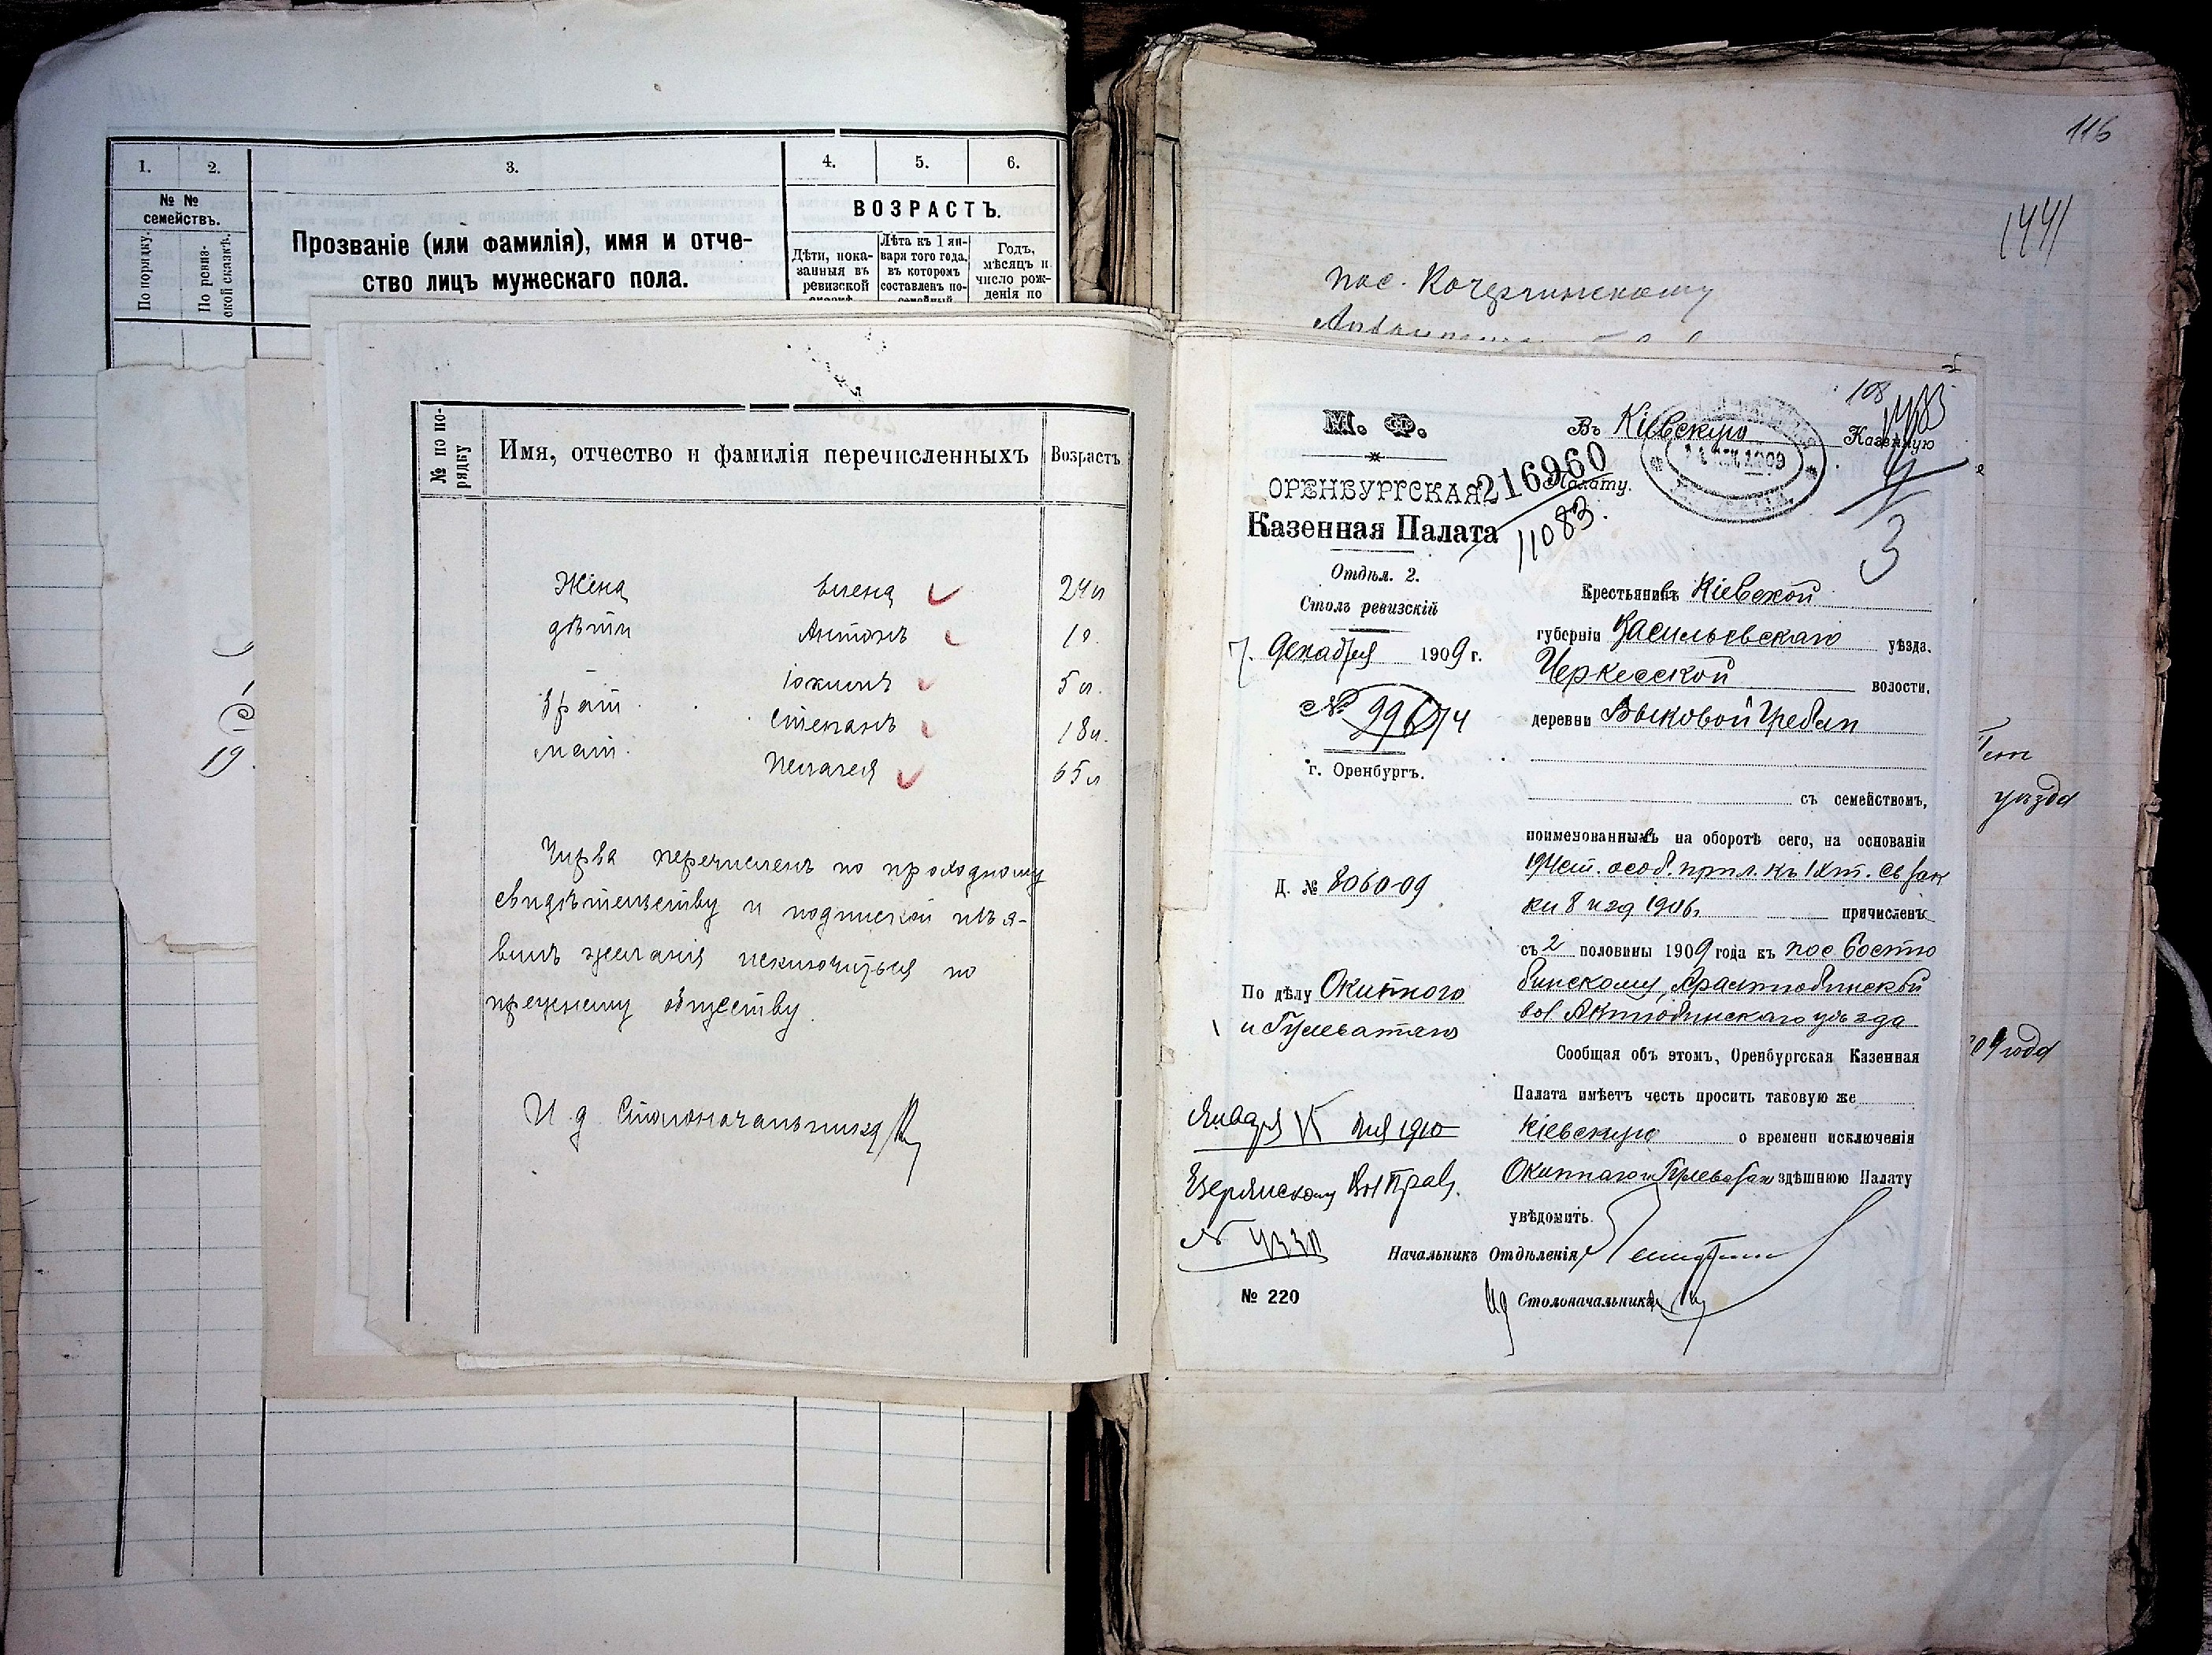 1. 2. 3. 4. 5. 6.
№ № семействъ.
По порядку.
По ревиз-
ской сказкѣ.
Прозваніе (или фамилія), имя и отче-
ство лицъ мужескаго пола.
ВОЗРАСТЪ.
Дѣти, пока-
занныя въ
ревизской
Лѣта къ 1 ян-
варя того года,
въ которомъ
составленъ по-
Годъ,
мѣсяцъ и
число рож-
денія по
19
№ по по-
рядку
Имя, отчество и фамилія перечисленныхъ
Возрастъ
Жена Елена 24 л
дѣти Антонъ
Іокимъ 5 л.
братъ Степанъ 18 л.
мать Пелагея 65 л
перечисленъ по проходному
свидѣтельству и подпиской изъя-
вилъ желанія исключиться по
прежнему обществу.
И. д. Столоначальника
116
1441
пос. Кочергинскому
уѣзда
09 года
108
М. Ф.
ОРЕНБУРГСКАЯ
Казенная Палата
Отдѣл. 2.
Столъ ревизскій
7. Декабря 1909 г.
№ 99674
г. Оренбургъ.
Д. № 8060-09
По дѣлу Окитного
и Гулеватаго
Января 1910
Езерянскому Вол Правл.
№ 4330
№ 220
Въ Кіевскую Казенную
Палату.
216960
11083.
1909
3
Крестьянинъ Кіевской
губерніи Васильевскаго уѣзда.
Черкесской волости,
деревни Выковой Гребли
съ семействомъ,
поименованнымъ на оборотѣ сего, на основаніи
194 ст. особ. прил. къ IX т. Св зак
ки 8 изд 1906 г. причисленъ
съ 2 половины 1909 года къ пос Бостю
бинскому, Аралтюбинской
вол Актюбинскаго уѣзда
Сообщая объ этомъ, Оренбургская Казенная
Палата имѣетъ честь просить таковую же
Кіевскую о времени исключенія
Окитнаго и Гулеватаго здѣшнюю Палату
увѣдомить.
Начальникъ Отдѣленія
Ид Столоначальника